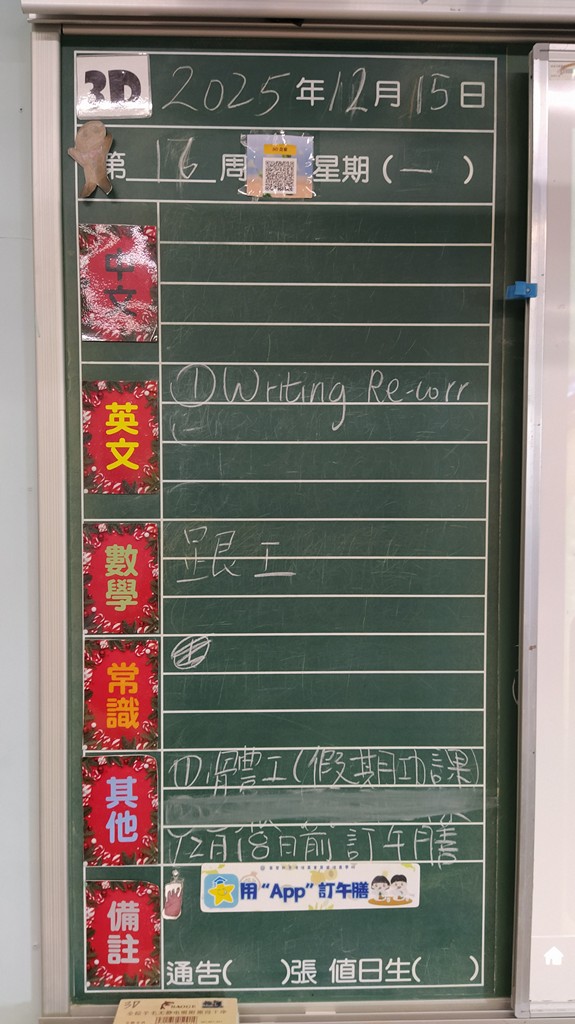 3D 2025年12月15日
第16周 星期(一)
中文
英文
①Writing Re-corr
數學
跟工
常識
其他
①體工(假期功課)
12月18日前訂午膳
備註
用“App”訂午膳
通告( )張 值日生( )
3D